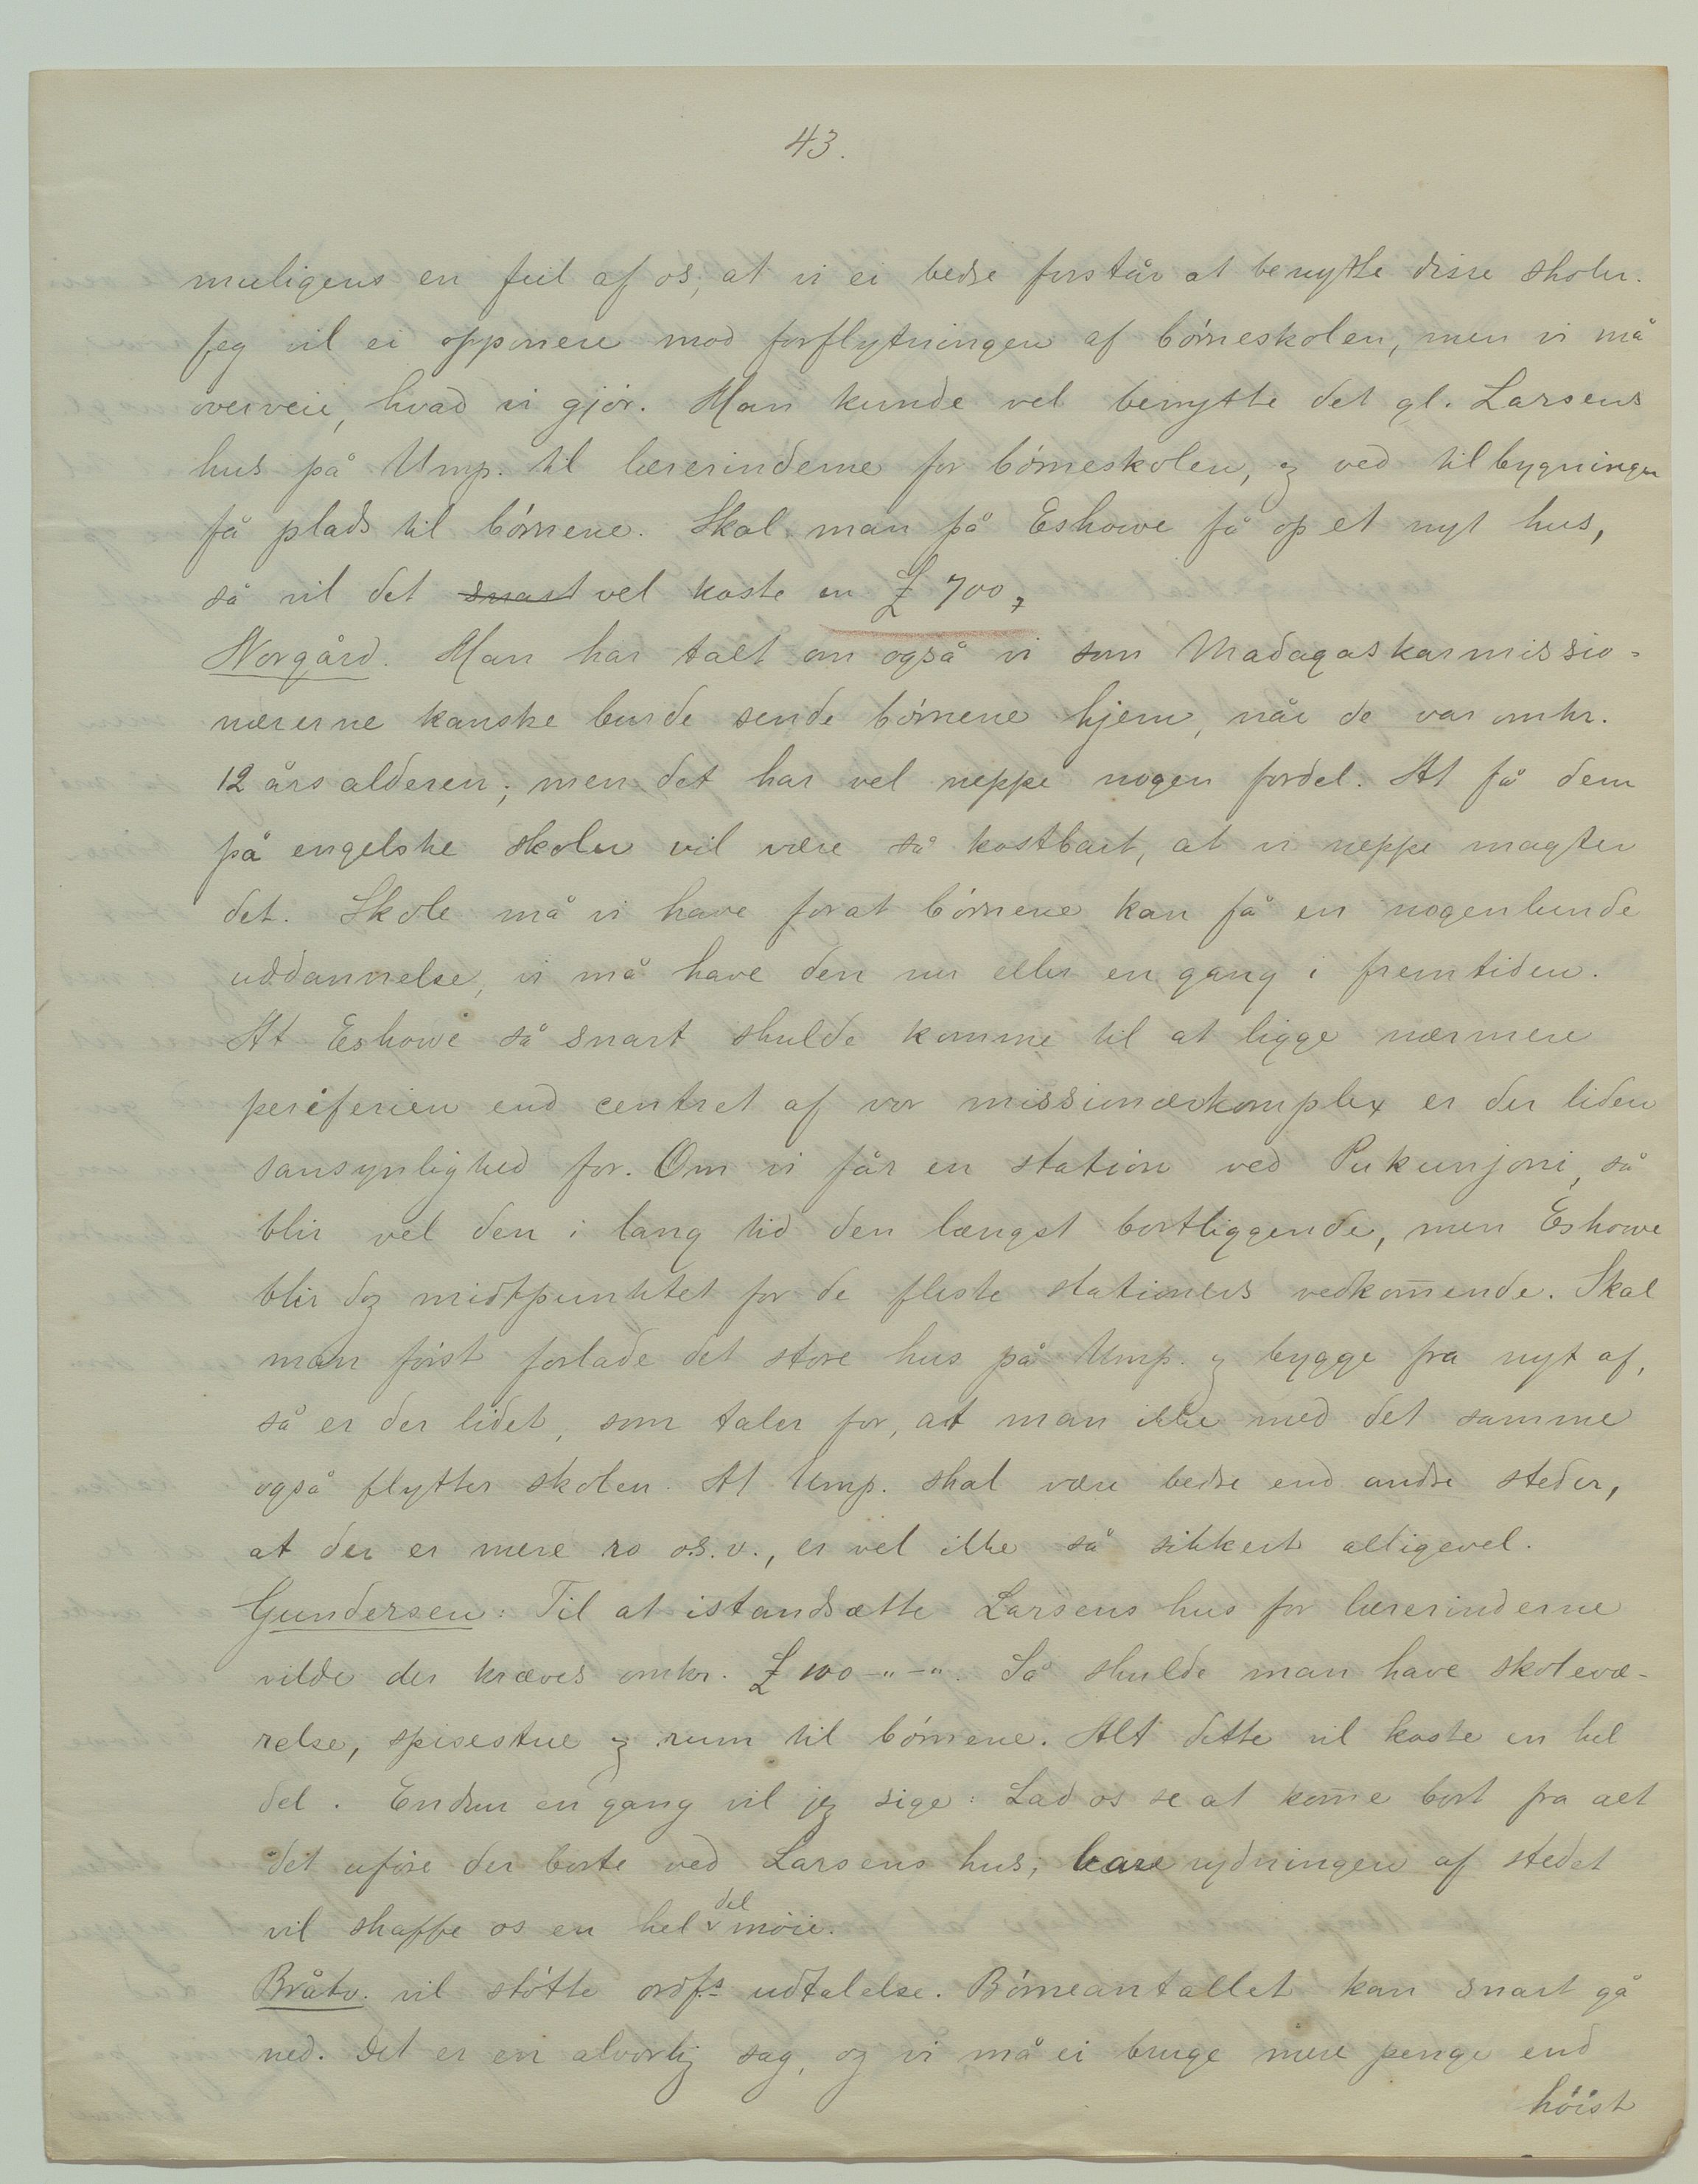 43.
muligens en feil af os, at vi ei bedre forstår at benytte disse skoler.
Jeg vil ei opponere mod forflytningen af børneskolen, men vi må
overveie, hvad vi gjør. Man kunde vel benytte det gl. Larsens
hus på Ump. til lærerinderne for børneskolen, og ved tilbygninger
få plads til børnene. Skal man på Eshowe få op et nyt hus,
så vil det snart vel koste en £ 700,
Norgård. Man har talt om også vi som Madagaskarmissio-
nærerne kanske burde sende børnene hjem, når de var omkr.
12 års alderen; men det har vel neppe nogen fordel. At få dem
på engelske skoler vil være så kostbart, at vi neppe magter
det. Skole må vi have forat børnene kan få en nogenlunde
uddannelse, vi må have den nu eller en gang i fremtiden.
At Eshowe så snart skulde komme til at ligge nærmere
periferien end centret af vor missionærkomplex er der liden
sansynlighed for. Om vi får en station ved Pukunjoni, så
blir vel den i lang tid den længst bortliggende, men Eshowe
blir dog midtpunktet for de fleste stationers vedkom̄ende. Skal
man først forlade det store hus på Ump. og bygge fra nyt af,
så er der lidet, som taler for, at man ikke med det samme
også flytter skolen. At Ump. skal være bedre end andre steder,
at der er mere ro o.s.v., er vel ikke så sikkert alligevel.
Gundersen: Til at istandsætte Larsens hus for lærerinderne
vilde der kræves omkr. £ 100-"-". Så skulde man have skolevæ-
relse, spisestue og rum til børnene. Alt dette vil koste en hel
del. Endnu en gang vil jeg sige: Lad os se at kom̄e bort fra alt
det uføre der borte ved Larsens hus; bare rydningen af stedet
vil skaffe os en hel del møie.
Bråtv. vil støtte ordfs udtalelse. Børneantallet kan snart gå
ned. Det er en alvorlig sag, og vi må ei bruge mere penge end
høist